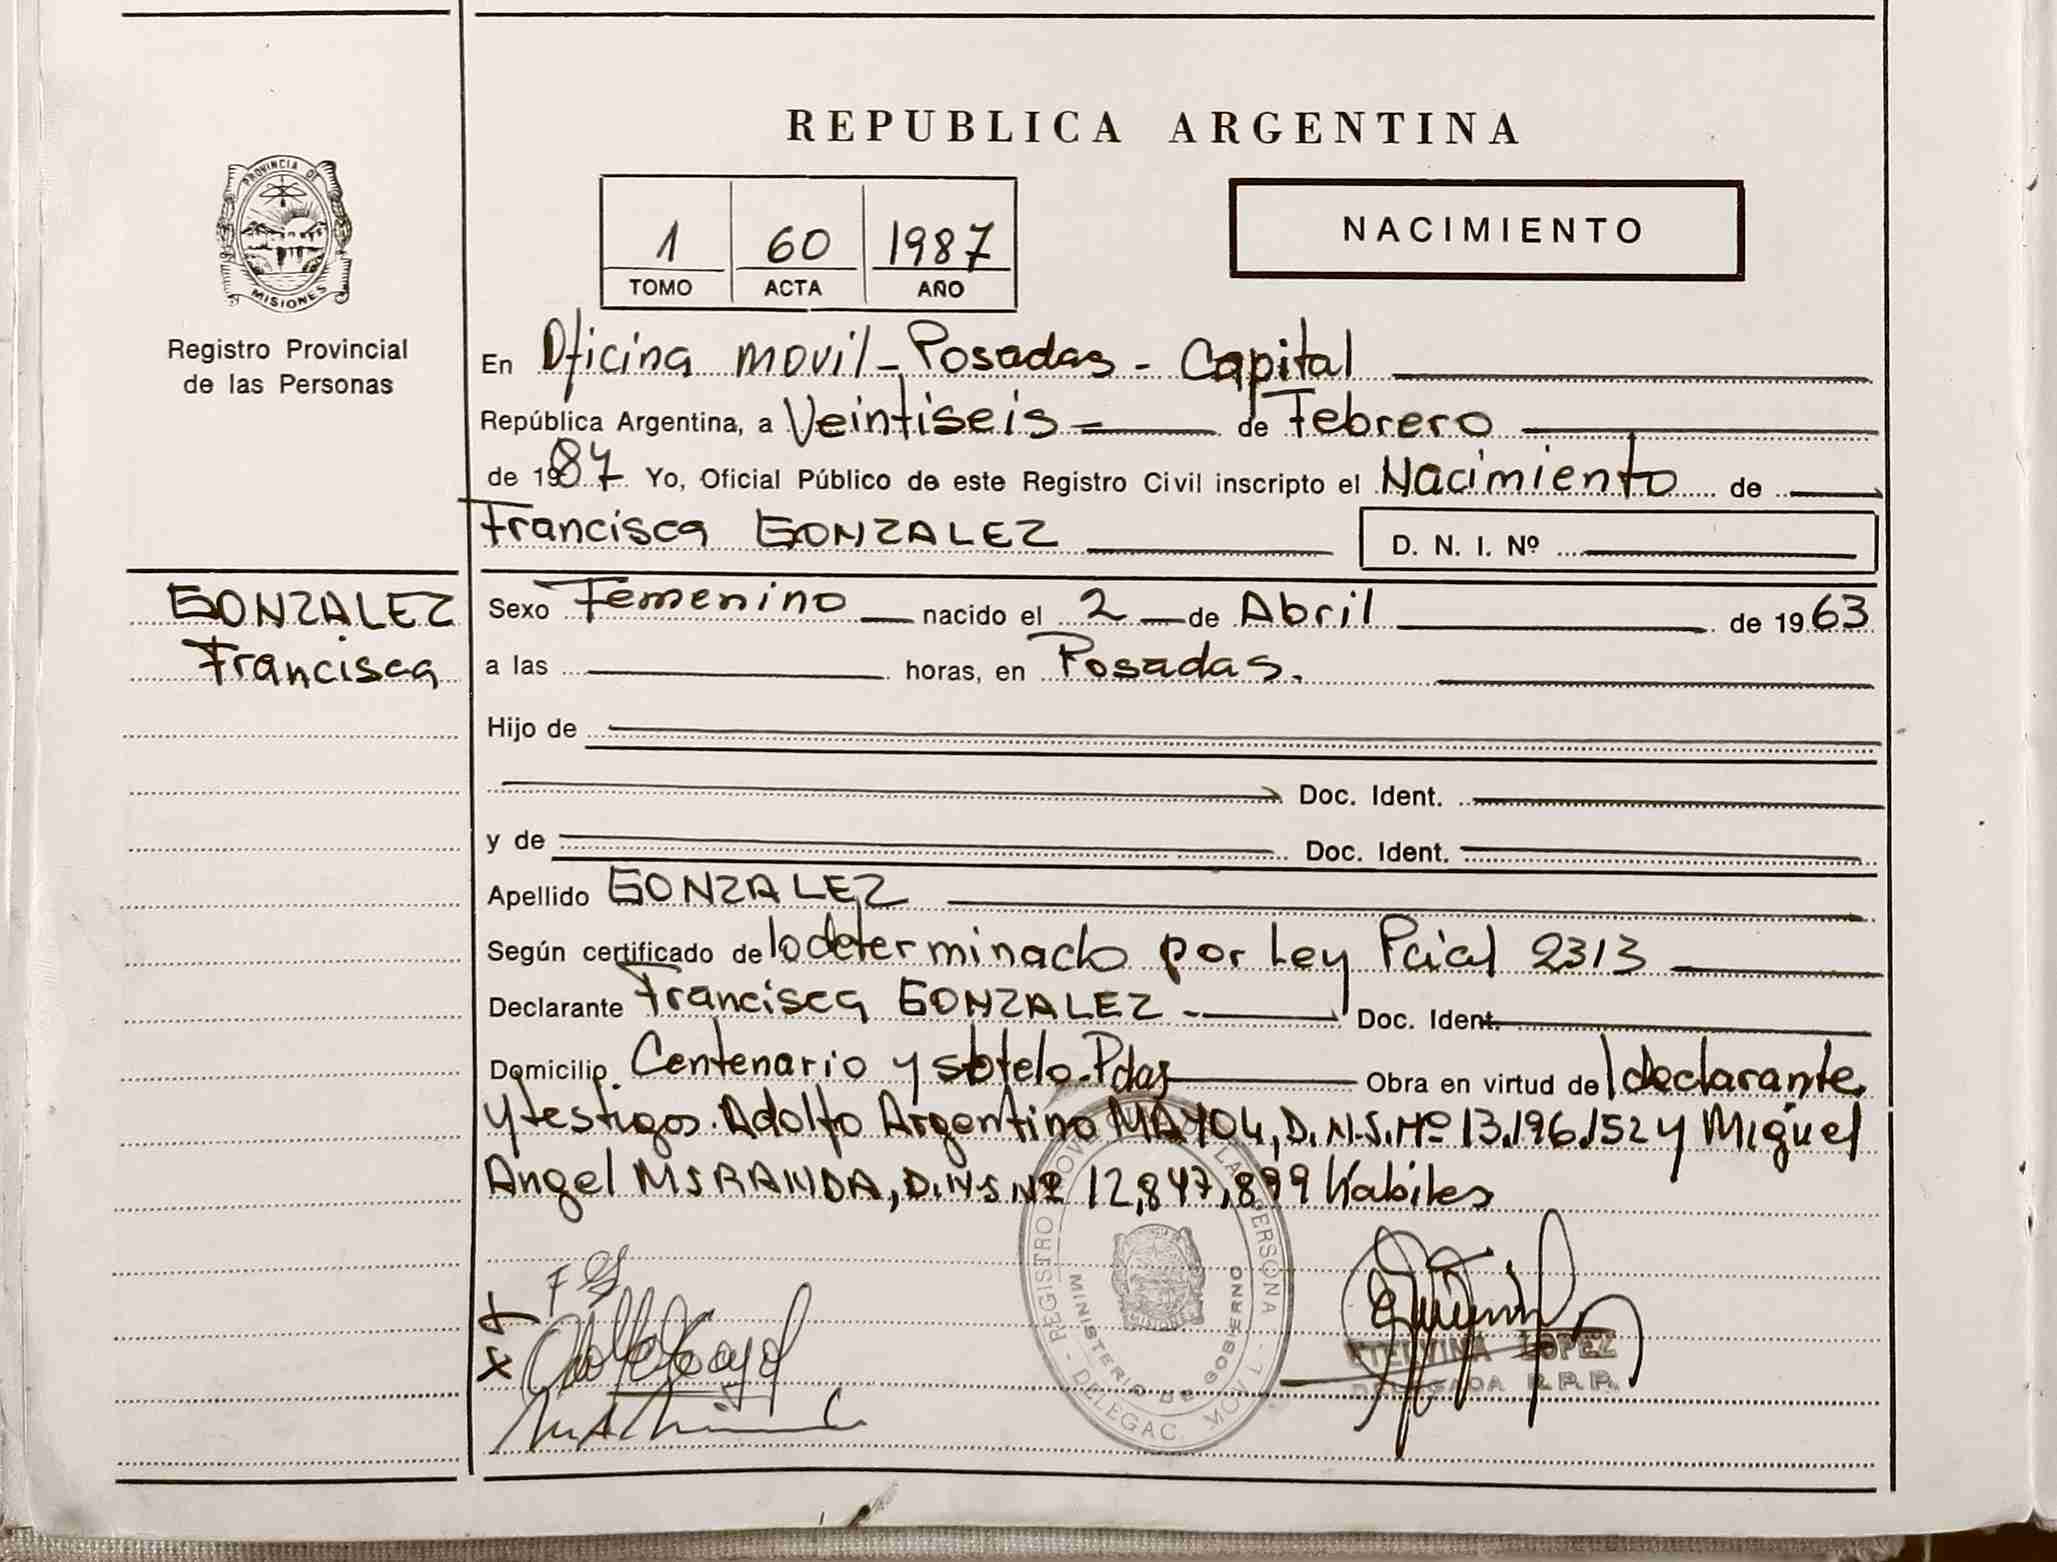 REPUBLICA ARGENTINA
PROVINCIA DE
MISIONES
Registro Provincial
de las Personas
1 60 1987
TOMO ACTA AÑO
NACIMIENTO
En Oficina movil - Posadas - Capital
República Argentina, a Veintiseis de Febrero
de 1987 Yo, Oficial Público de este Registro Civil inscripto el Nacimiento de
Francisca GONZALEZ D. N. I. Nº
GONZALEZ
Francisca
Sexo Femenino nacido el 2 de Abril de 1963
a las horas, en Posadas.
Hijo de
Doc. Ident.
y de Doc. Ident.
Apellido GONZALEZ
Según certificado de lo determinado por Ley Pcial 2313
Declarante Francisca GONZALEZ - Doc. Ident.
Domicilio Centenario y sotelo - Pdas Obra en virtud de declarante
y testigos. Adolfo Argentino MAYOL, D.N.I. Nº 13.196.152 y Miguel
Angel MIRANDA, D.N.I Nº 12,847,899 Habiles
REGISTRO LA PERSONA
DELEGAC. MOVIL 1
MINISTERIO DE GOBIERNO
MISIONES
ETELVINA LOPEZ
DELEGADA R.P.P.